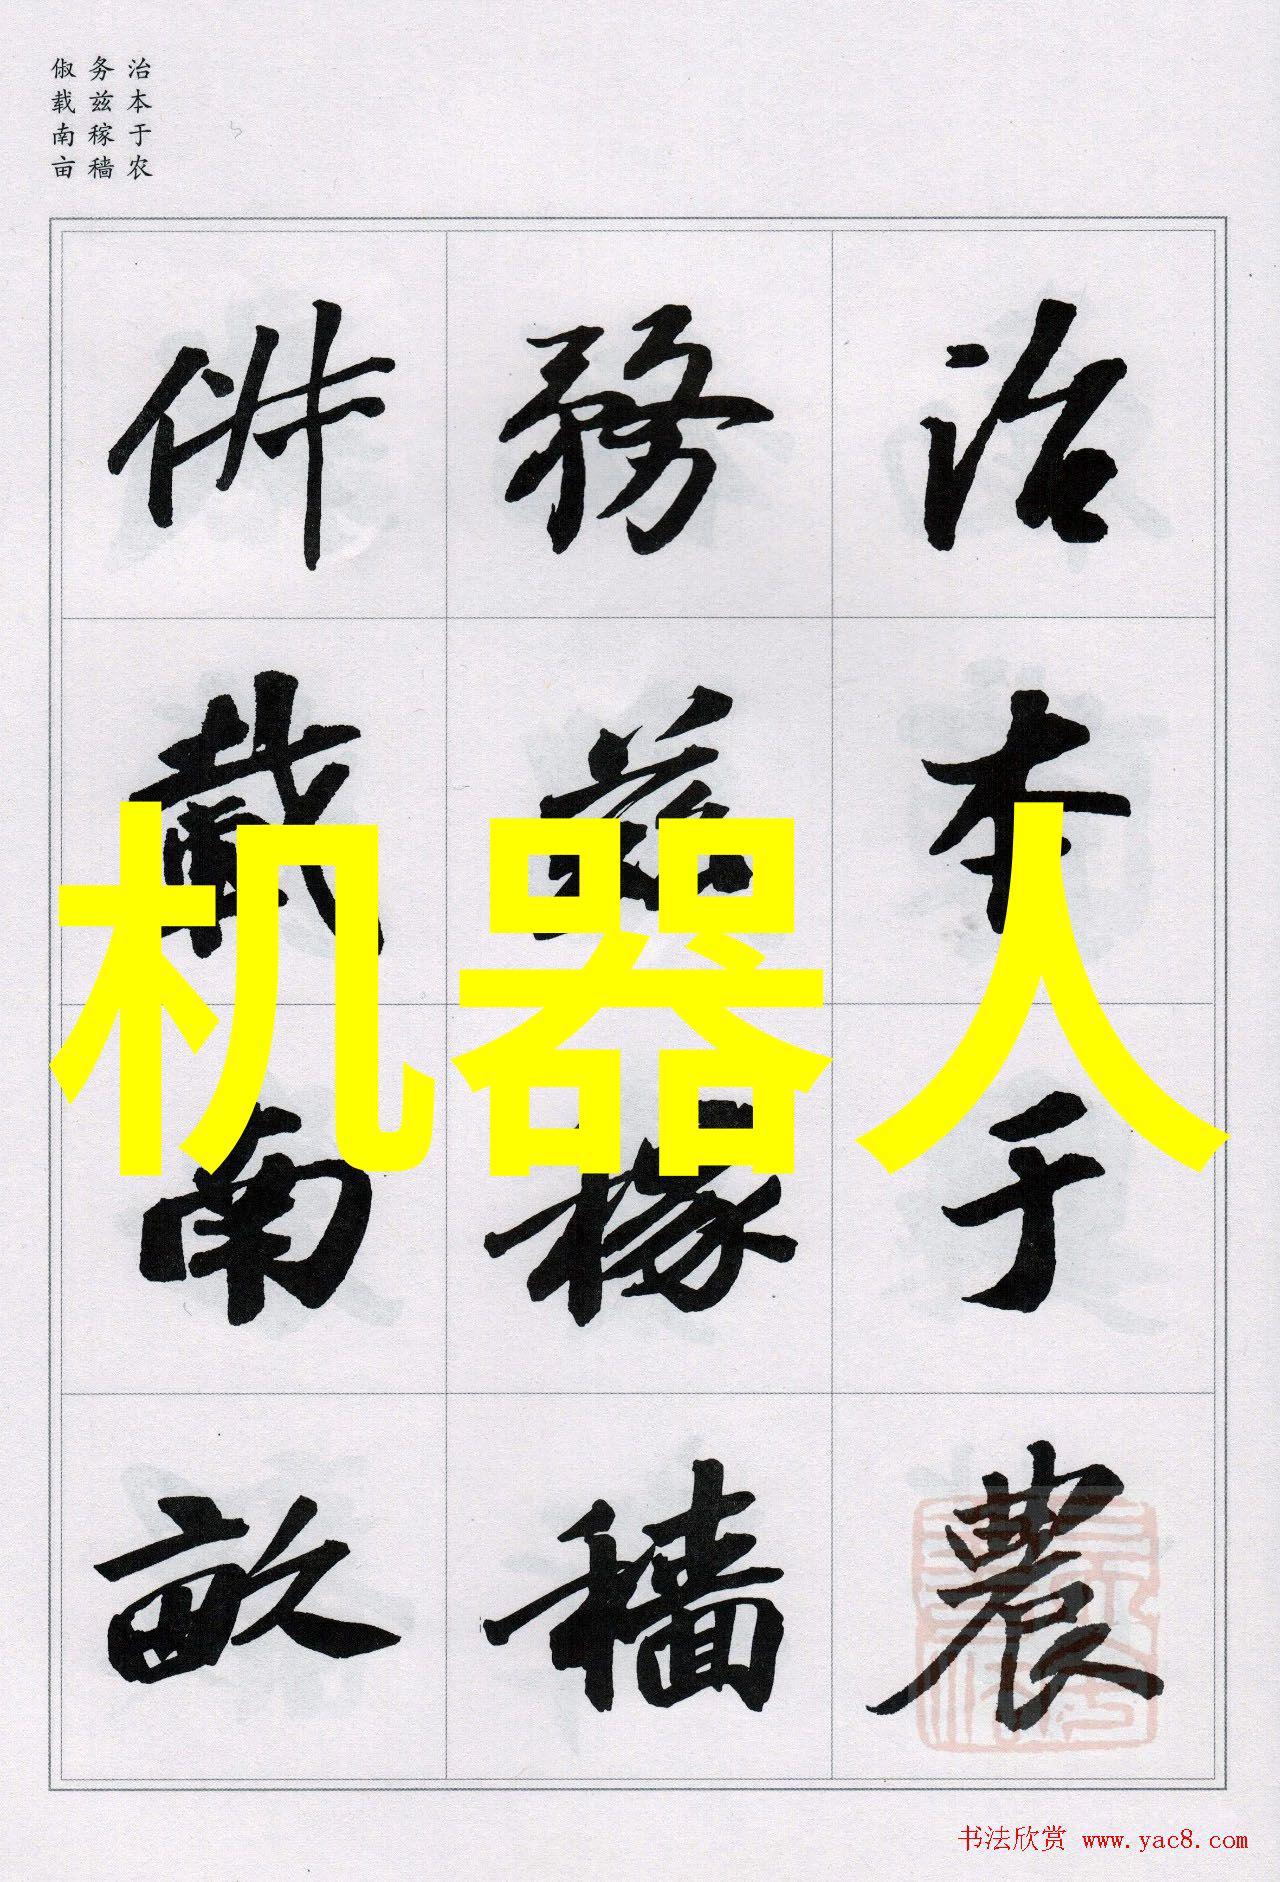 治本于农
务兹稼穑
俶载南亩
治本于農
務茲稼穡
俶載南畝
机器人
书法欣赏 www.yac8.com